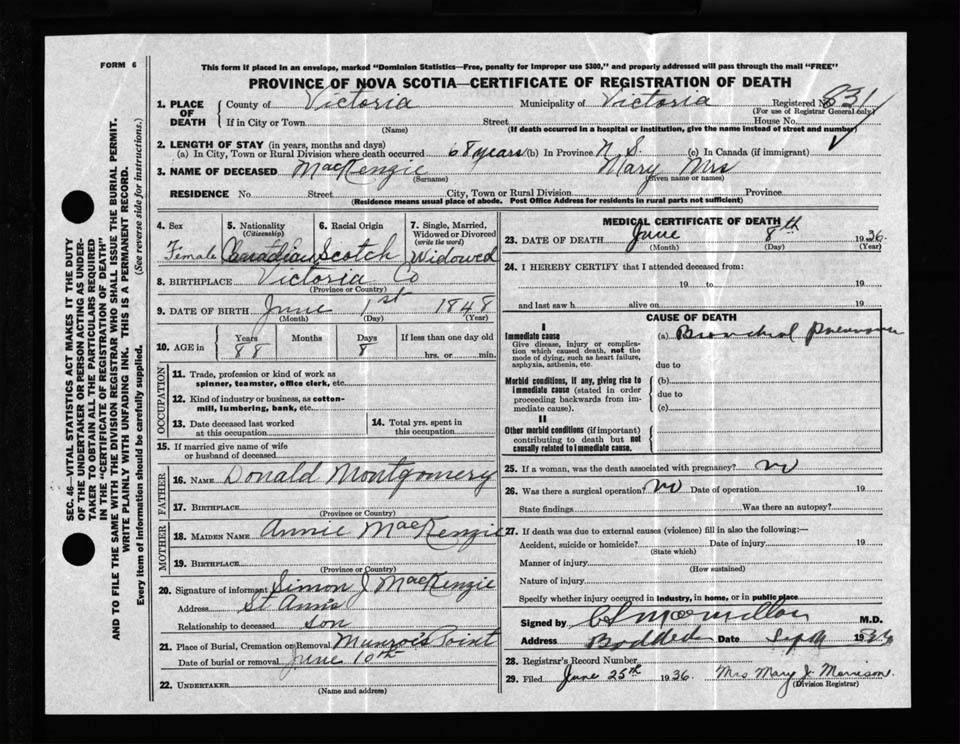 FORM 6
This form if placed in an envelope, marked "Dominion Statistics—Free, penalty for improper use $300," and properly addressed will pass through the mail "FREE"
PROVINCE OF NOVA SCOTIA—CERTIFICATE OF REGISTRATION OF DEATH
1. PLACE OF DEATH County of Victoria Municipality of Victoria Registered No. 831
(For use of Registrar General only)
If in City or Town Street House No.
(Name) (If death occurred in a hospital or institution, give the name instead of street and number)
2. LENGTH OF STAY (in years, months and days)
(a) In City, Town or Rural Division where death occurred 68 years (b) In Province N. S. (c) In Canada (if immigrant)
3. NAME OF DECEASED MacKenzie Mary Mrs
(Surname) (Given name or names)
RESIDENCE No. Street City, Town or Rural Division Province
(Residence means usual place of abode. Post Office Address for residents in rural parts not sufficient)
4. Sex Female
5. Nationality (Citizenship) Canadian
6. Racial Origin Scotch
7. Single, Married, Widowed or Divorced (write the word) Widowed
8. BIRTHPLACE Victoria Co
(Province or Country)
9. DATE OF BIRTH June 1st 1848
(Month) (Day) (Year)
10. AGE in Years 88 Months Days 8 If less than one day old hrs. or min.
OCCUPATION
11. Trade, profession or kind of work as spinner, teamster, office clerk, etc.
12. Kind of industry or business, as cotton-mill, lumbering, bank, etc.
13. Date deceased last worked at this occupation
14. Total yrs. spent in this occupation
15. If married give name of wife or husband of deceased
FATHER
16. NAME Donald Montgomery
17. BIRTHPLACE
(Province or Country)
MOTHER
18. MAIDEN NAME Annie MacKenzie
19. BIRTHPLACE
(Province or Country)
20. Signature of informant Simon J MacKenzie
Address St Ann's
Relationship to deceased son
21. Place of Burial, Cremation or Removal Munroe's Point
Date of burial or removal June 10th
22. UNDERTAKER
(Name and address)
MEDICAL CERTIFICATE OF DEATH
23. DATE OF DEATH June 8th 1936
(Month) (Day) (Year)
24. I HEREBY CERTIFY that I attended deceased from:
19 to 19
and last saw h alive on 19
CAUSE OF DEATH
I
Immediate cause
Give disease, injury or complication which caused death, not the mode of dying, such as heart failure, asphyxia, asthenia, etc.
(a) Bronchial Pneumonia
due to
Morbid conditions, if any, giving rise to immediate cause (stated in order proceeding backwards from immediate cause).
(b)
due to
(c)
II
Other morbid conditions (if important) contributing to death but not causally related to immediate cause.
25. If a woman, was the death associated with pregnancy? No
26. Was there a surgical operation? No Date of operation 19
State findings Was there an autopsy?
27. If death was due to external causes (violence) fill in also the following:—
Accident, suicide or homicide? Date of injury 19
(State which)
Manner of injury
(How sustained)
Nature of injury
Specify whether injury occurred in industry, in home, or in public place
Signed by M.D.
Address Baddeck Date 1936
28. Registrar's Record Number
29. Filed June 25th 1936. Mrs Mary J. Morrison.
(Division Registrar)
SEC. 46—VITAL STATISTICS ACT MAKES IT THE DUTY
OF THE UNDERTAKER OR PERSON ACTING AS UNDERTAKER
TO OBTAIN ALL THE PARTICULARS REQUIRED
IN THE "CERTIFICATE OF REGISTRATION OF DEATH"
AND TO FILE THE SAME WITH THE DIVISION REGISTRAR WHO SHALL ISSUE THE BURIAL PERMIT.
WRITE PLAINLY WITH UNFADING INK. THIS IS A PERMANENT RECORD.
Every item of information should be carefully supplied. (See reverse side for instructions.)